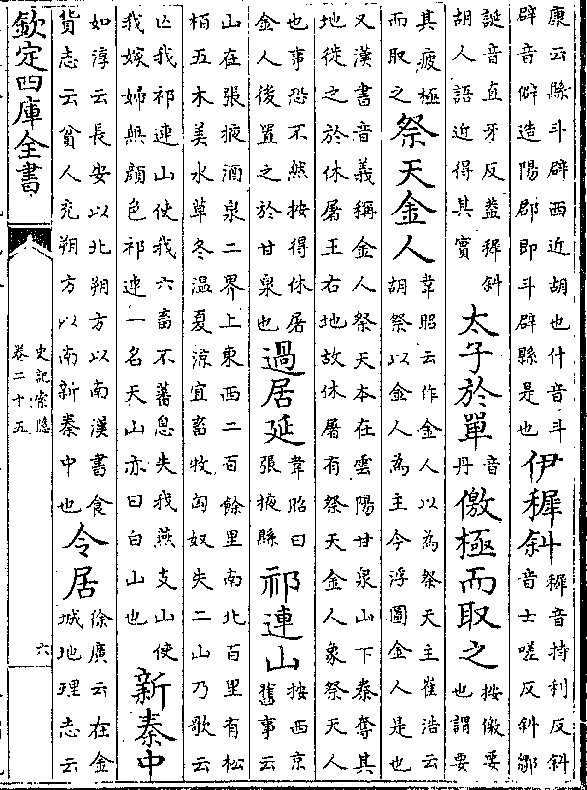 康云縣斗辟西近胡也什音斗
辟音僻造陽郡即斗辟縣是也
伊穉斜
穉音持利反斜
音士嗟反斜鄒
誕音直牙反蓋穉斜
胡人語近得其實
太子於單
音
丹
儌極而取之
按儌要
也謂要
其疲極
而取之
祭天金人
韋昭云作金人以為祭天主崔浩云
胡祭以金人為主今浮圖金人是也
又漢書音義稱金人祭天本在雲陽甘泉山下秦奪其
地徙之於休屠王右地故休屠有祭天金人象祭天人
也事恐不然按得休屠
金人後置之於甘泉也
過居延
韋昭曰
張掖縣
祁連山
按西京
舊事云
山在張掖酒泉二界上東西二百餘里南北百里有松
栢五木美水草冬温夏涼宜畜牧匈奴失二山乃歌云
亡我祁連山使我六畜不蕃息失我燕支山使
我嫁婦無顏色祁連一名天山亦曰白山也
新秦中
如淳云長安以北朔方以南漢書食
貨志云貧人充朔方以南新秦中也
令居
徐廣云在金
城地理志云
欽定四庫全書
史記索隱
卷二十五
六